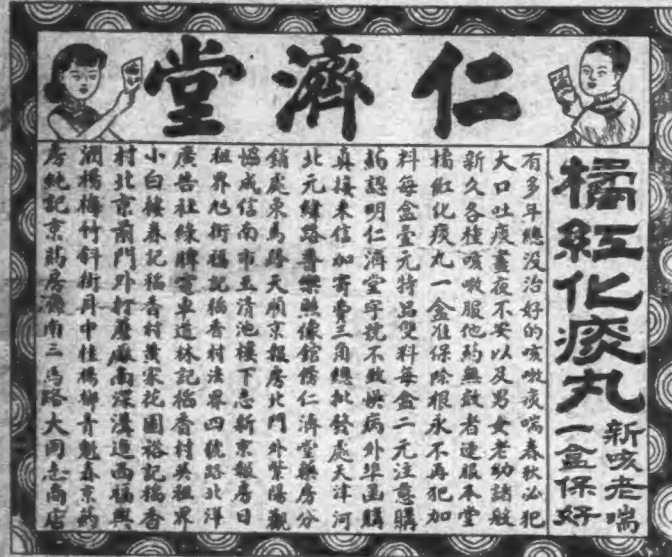 仁濟堂
橘紅化痰丸
新咳老喘
一盒保好
有多年總没治好的咳嗽痰喘春秋必犯
大口吐痰晝夜不安以及男女老幼諸般
新久各種咳嗽服他药無效者速服本堂
橘紅化痰丸一盒准保除根永不再犯加
料每盒壹元特品雙料每盒二元注意購
药認明仁濟堂字號不致悞病外埠函購
真接来信加寄費三角總批發處天津河
北元緯路普樂照像館傍仁濟堂藥房分
銷處東馬路天順京報房北門外紫陽觀
協成信南市玉清池樓下志新京報房日
租界旭街福記稲香村法界四號路北洋
廣告社綠牌電車道林記稲香村英租界
小白楼春記稲香村黄家花園裕記稲香
村北京前門外打磨廠南深溝進西福興
潤楊梅竹斜街月中桂楊柳青魁春京药
房純記京药房濟南三馬路大同志商店